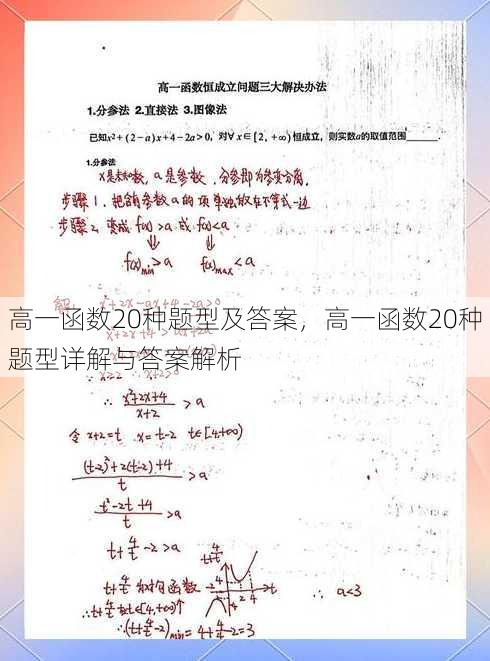 高一函数恒成立问题三大解决办法
1.分参法 2.直接法 3.图像法
已知x²+(2-a)x+4-2a>0, 对∀x∈[2,+∞)恒成立, 则实数a的取值范围______.
1.分参法
x是未知数, a是参数, 分参即分离参变分离.
步骤1. 把含参数a的项单独放在不等式一边
步骤2, 变成 f(x)>a 或 f(x)<a
⇓ ⇓
f(x)min>a f(x)max<a
解: x²+2x-ax+4-2a>0
高一函数20种题型及答案，高一函数20种
题型详解与答案解析
∴ x²+2x+4/x+2 >a
令 x+2=t x=t-2 t∈[4,+∞)
(t-2)²+2(t-2)+4/t >a
t²-2t+4/t >a
t+4/t-2>a
t+4/t 对勾函数
∴t+4/t 在t∈[4,+∞)↑
∴(t+4/t-2)min=4+4/4-2=3
∴ a<3